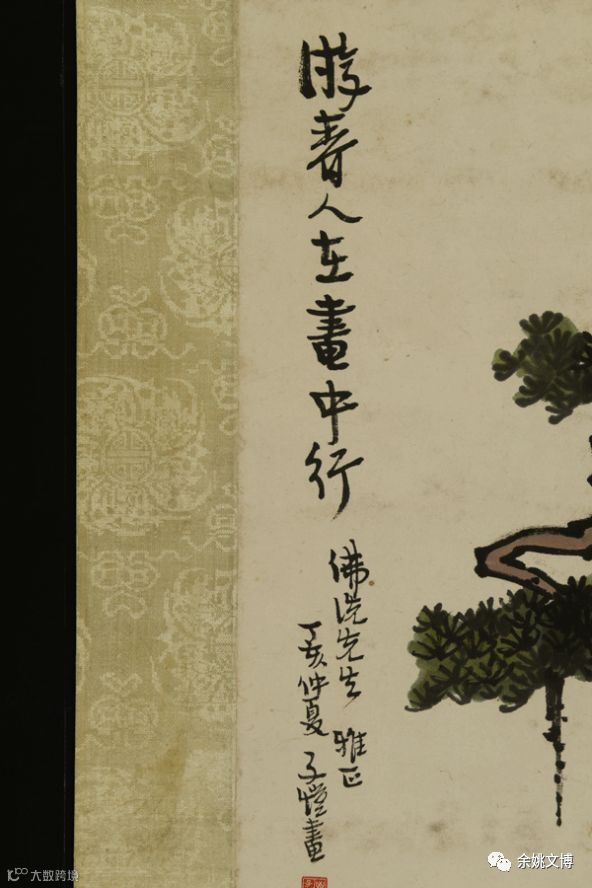 游春人在畫中行
佛洗先生 雅正
丁亥仲夏 子愷畫
大数跨境
余姚文博